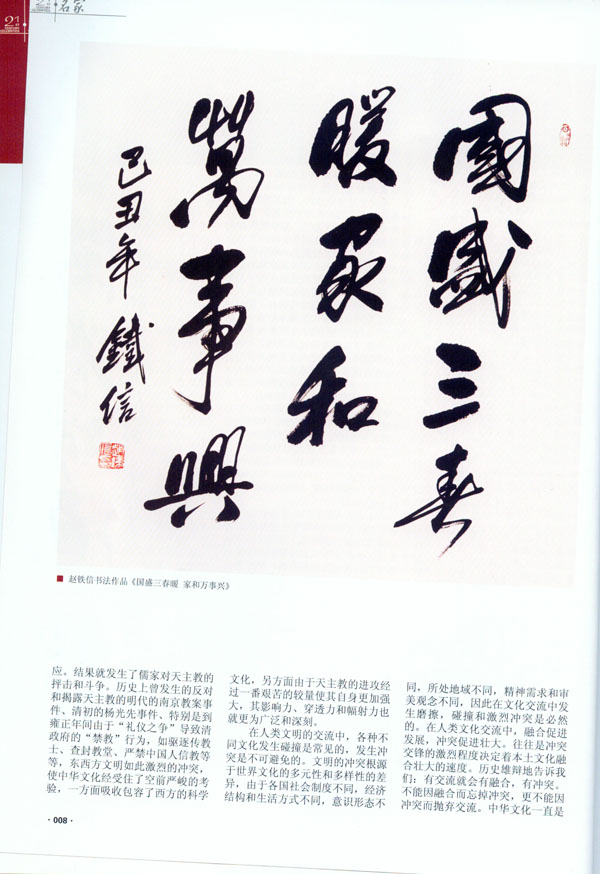 21
名家
國盛三春
暖家和
萬事興
己丑年 鐵信
■ 赵铁信书法作品《国盛三春暖 家和万事兴》
应。结果就发生了儒家对天主教的
抨击和斗争。历史上曾发生的反对
和揭露天主教的明代的南京教案事
件、清初的杨光先事件、特别是到
雍正年间由于“礼仪之争”导致清
政府的“禁教”行为，如驱逐传教
士、查封教堂、严禁中国人信教等
等，东西方文明如此激烈的冲突，
使中华文化经受住了空前严峻的考
验，一方面吸收包容了西方的科学
文化，另方面由于天主教的进攻经
过一番艰苦的较量使其自身更加强
大，其影响力、穿透力和辐射力也
就更为广泛和深刻。
在人类文明的交流中，各种不
同文化发生碰撞是常见的，发生冲
突是不可避免的。文明的冲突根源
于世界文化的多元性和多样性的差
异，由于各国社会制度不同，经济
结构和生活方式不同，意识形态不
同，所处地域不同，精神需求和审
美观念不同，因此在文化交流中发
生磨擦，碰撞和激烈冲突是必然
的。在人类文化交流中，融合促进
发展，冲突促进壮大。往往是冲突
交锋的激烈程度决定着本土文化融
合壮大的速度。历史雄辩地告诉我
们；有交流就会有融合，有冲突。
不能因融合而忘掉冲突，更不能因
冲突而抛弃交流。中华文化一直是
·008·